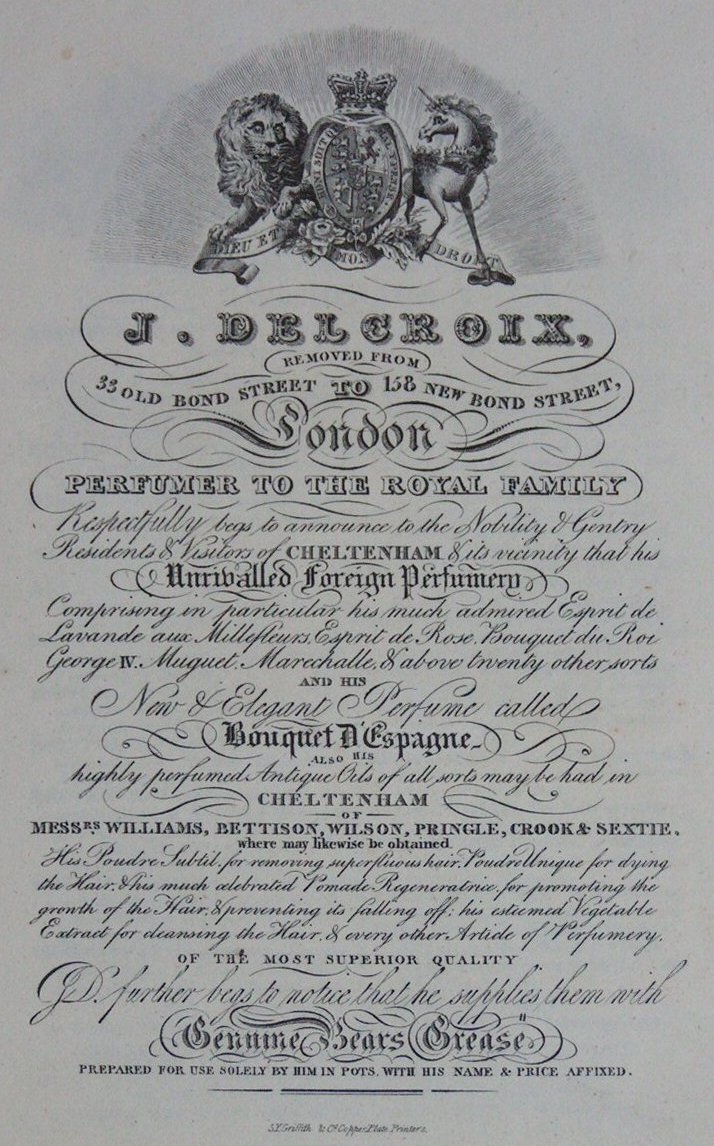 HONI SOIT QUI MAL Y PENSE
DIEU ET MON DROIT
J. DELCROIX,
REMOVED FROM
33 OLD BOND STREET TO 158 NEW BOND STREET,
London
PERFUMER TO THE ROYAL FAMILY
Respectfully begs to announce to the Nobility & Gentry
Residents & Visitors of CHELTENHAM & its vicinity that his
Unrivalled Foreign Perfumery
Comprising in particular his much admired Esprit de
Lavande aux Millefleurs, Esprit de Rose, Bouquet du Roi
George IV. Muguet, Marechalle, & above twenty other sorts
AND HIS
New & Elegant Perfume called
Bouquet D'Espagne
ALSO HIS
highly perfumed Antique Oils of all sorts may be had in
CHELTENHAM
OF
MESSRS WILLIAMS, BETTISON, WILSON, PRINGLE, CROOK & SEXTIE.
where may likewise be obtained.
His Poudre Subtil, for removing superfluous hair, Poudre Unique for dying
the Hair, & his much celebrated Pomade Regeneratrice, for promoting the
growth of the Hair, & preventing its falling off; his esteemed Vegetable
Extract for cleansing the Hair, & every other Article of Perfumery,
OF THE MOST SUPERIOR QUALITY
J.D. further begs to notice that he supplies them with
Genuine Bears Grease"
PREPARED FOR USE SOLELY BY HIM IN POTS, WITH HIS NAME & PRICE AFFIXED.
S.Y. Griffith & Co. Copper Plate Printers.